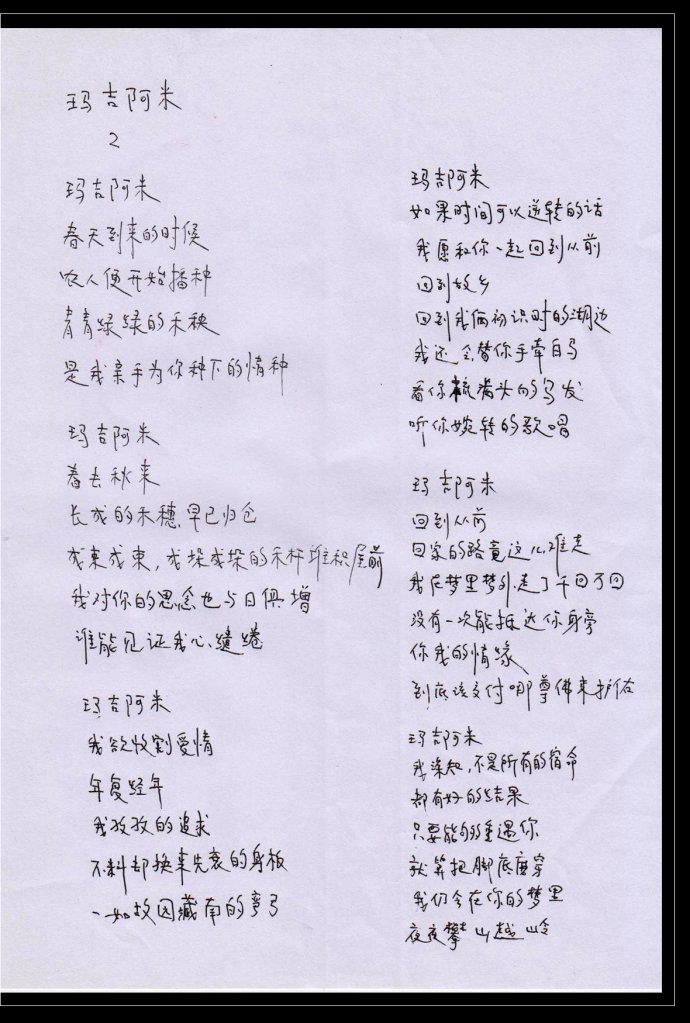 玛吉阿米
2
玛吉阿米
春天到来的时候
农人便开始播种
青青绿绿的禾秧
是我亲手为你种下的情种
玛吉阿米
春去秋来
长成的禾穗,早已归仓
成束成束,成垛成垛的禾杆堆积屋前
我对你的思念也与日俱增
谁能见证我心缱绻
玛吉阿米
我欲收割爱情
年复经年
我孜孜的追求
不料却换来先衰的身板
一如故园藏南的弯弓
玛吉阿米
如果时间可以逆转的话
我愿和你一起回到从前
回到故乡
回到我俩初识时的湖边
我还会替你手牵白马
看你梳满头的乌发
听你婉转的歌唱
玛吉阿米
回到从前
回家的路竟这儿难走
我在梦里梦外,走了千回万回
没有一次能抵达你身旁
你我的情缘
到底该交付哪尊佛来护佑
玛吉阿米
我深知,不是所有的宿命
都有好的结果
只要能够重遇你
就算把脚底磨穿
我仍会在你的梦里
夜夜攀山越岭